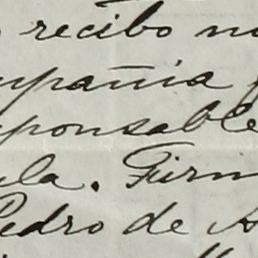 recibo no
mpañia
sponsable
ula. Firm
Pedro de A